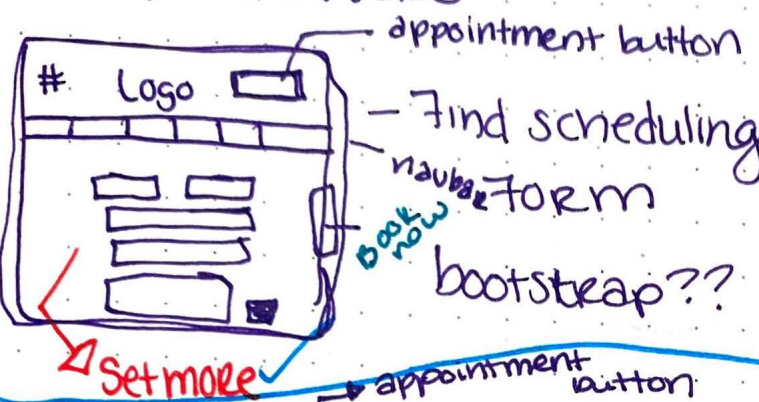 appointment button
# Logo
- Find scheduling
navbar
Form
Book
now
bootstrap??
Setmore
appointment
button